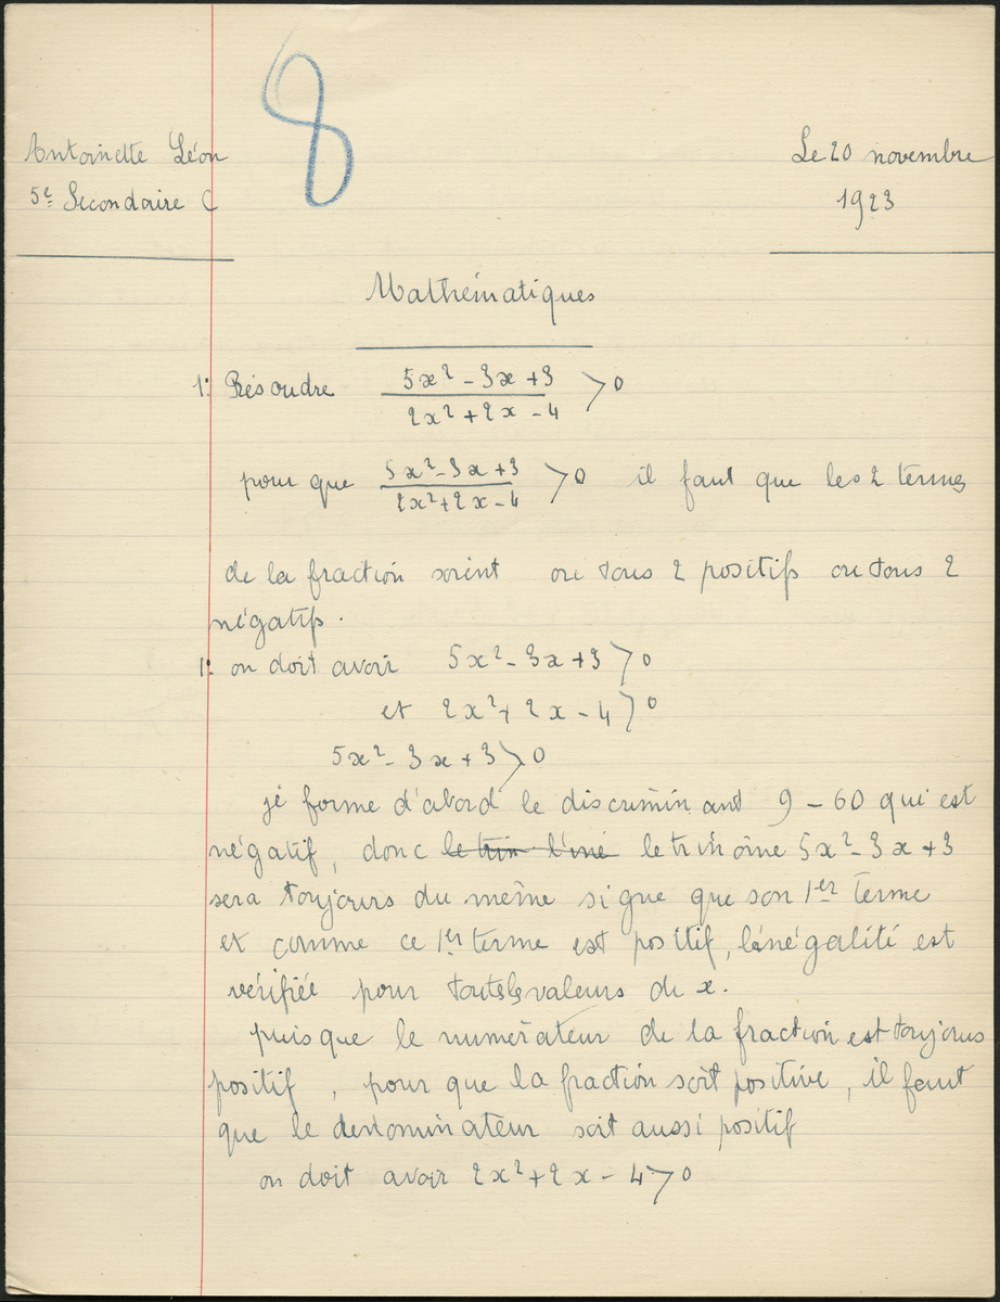 8
Antoinette Léon
Le 20 novembre
5e Secondaire C
1923
Mathématiques
1: Résoudre (5x² - 3x + 3)/(2x² + 2x - 4) > 0
pour que (5x² - 3x + 3)/(2x² + 2x - 4) > 0 il faut que les 2 termes
de la fraction soient ou tous 2 positifs ou tous 2
négatifs.
1: on doit avoir 5x² - 3x + 3 > 0
et 2x² + 2x - 4 > 0
5x² - 3x + 3 > 0
je forme d'abord le discriminant 9 - 60 qui est
négatif, donc le trin l'iné le trinôme 5x² - 3x + 3
sera toujours du même signe que son 1er terme
et comme ce 1er terme est positif, l'inégalité est
vérifiée pour toutes les valeurs de x.
puis que le numérateur de la fraction est toujours
positif, pour que la fraction soit positive, il faut
que le dénominateur soit aussi positif
on doit avoir 2x² + 2x - 4 > 0